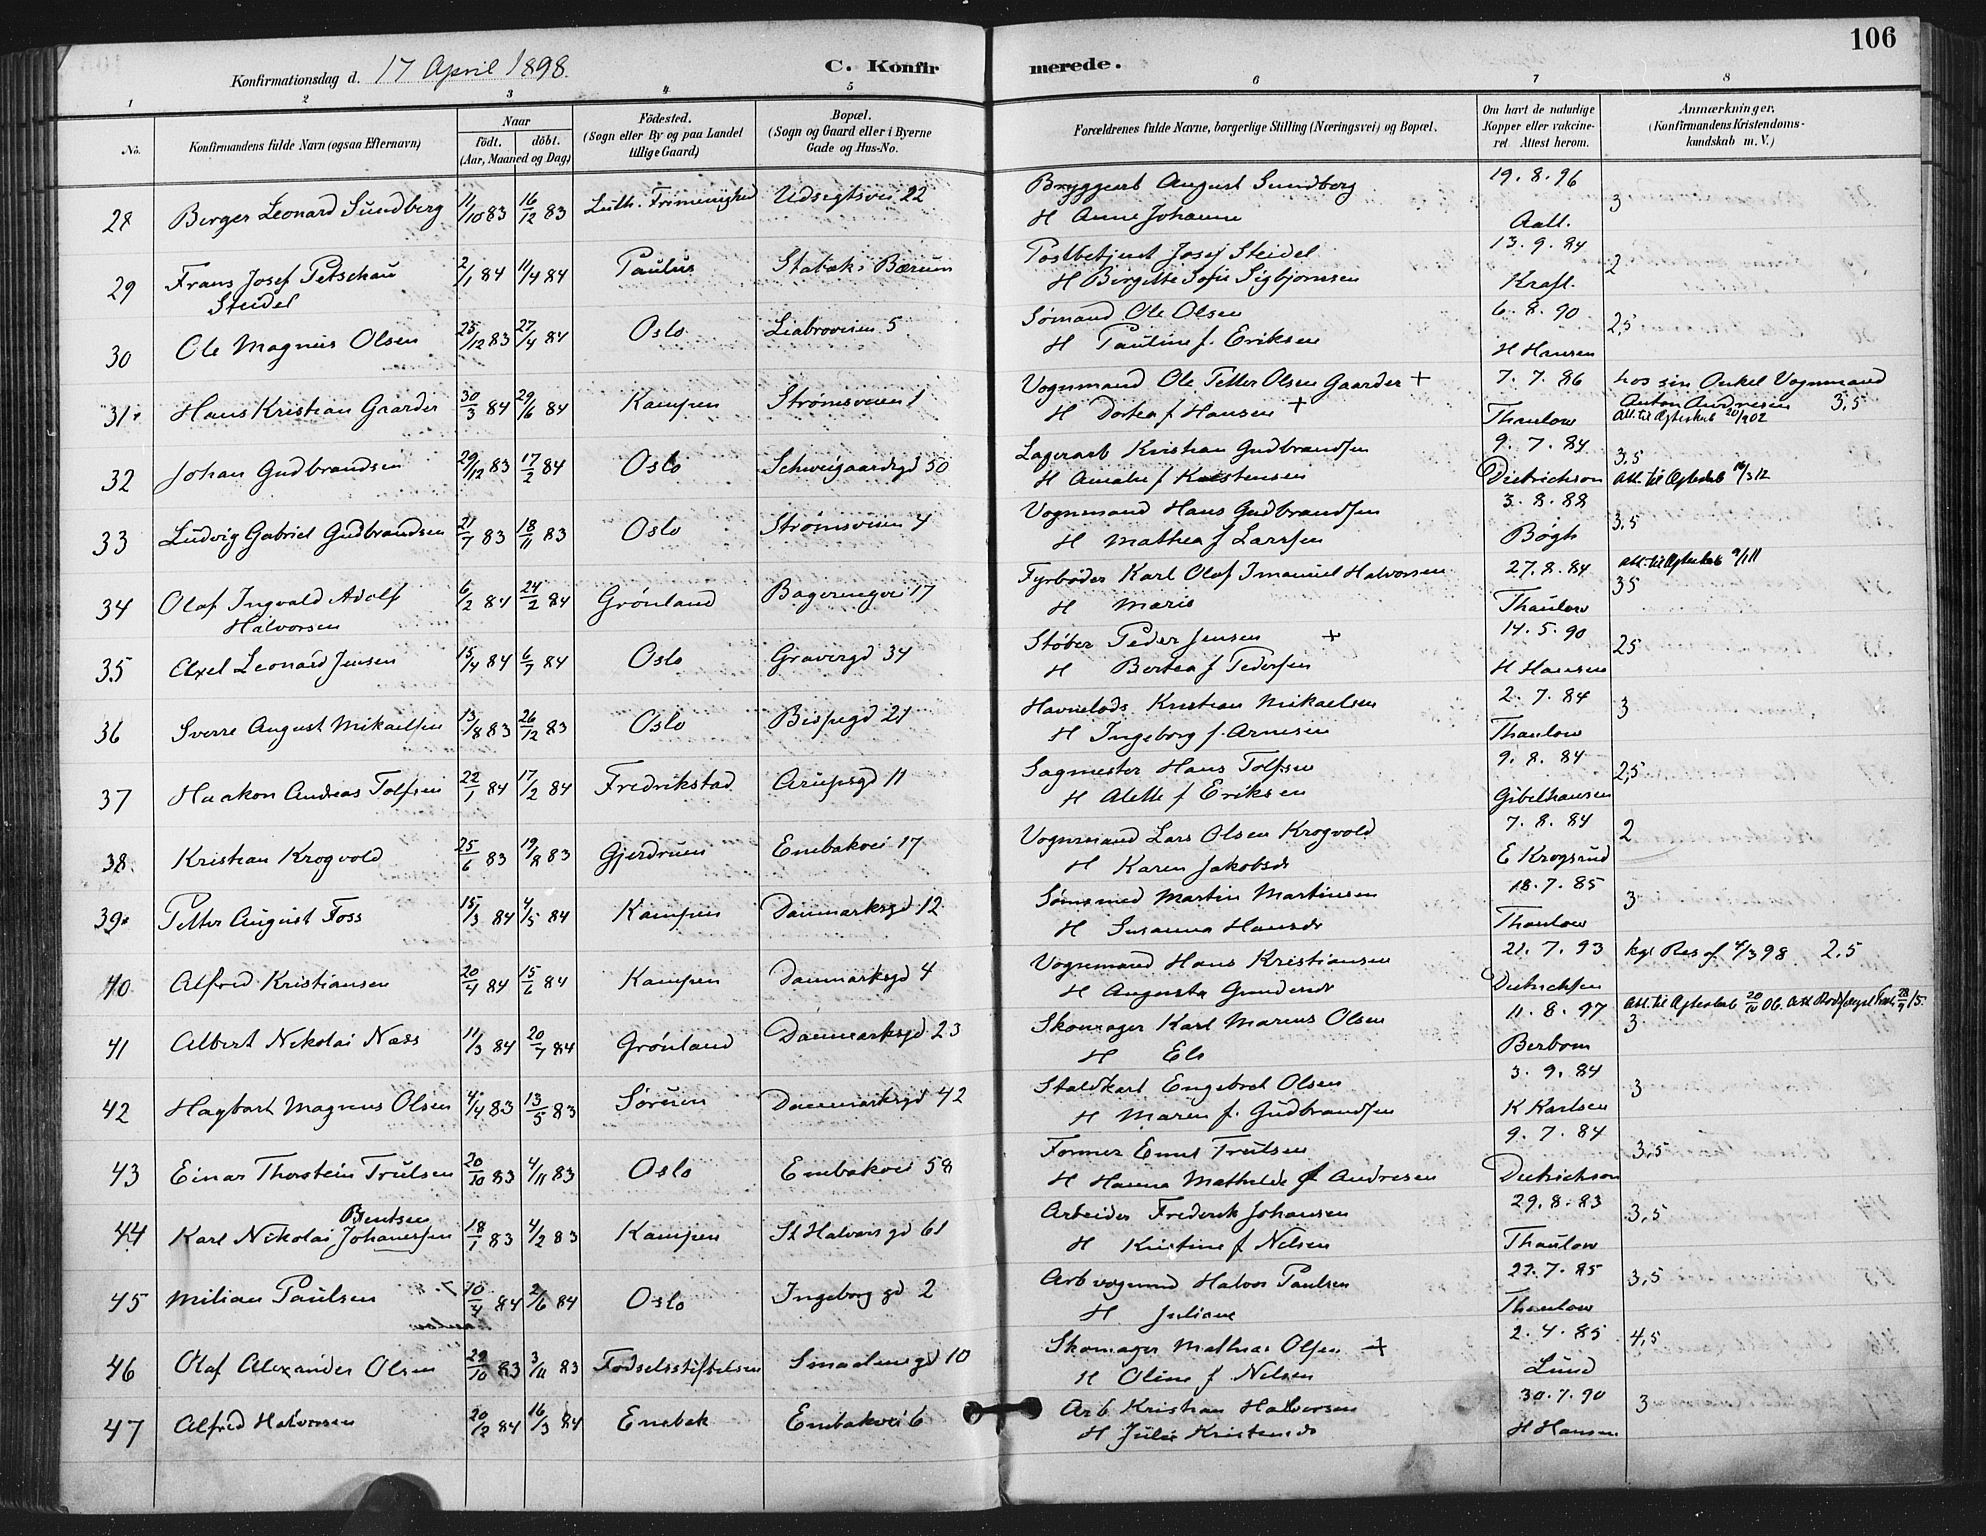 106
Konfirmationsdag d. 17 April 1898. C. Konfirmerede.
1 2 3 4 5 6 7 8
No. Konfirmandens fulde Navn (ogsaa Efternavn) Naar födt. döbt. (Aar, Maaned og Dag) Födested. (Sogn eller By og paa Landet tillige Gaard) Bopæl. (Sogn og Gaard eller i Byerne Gade og Hus-No. Forældrenes fulde Navne, borgerlige Stilling (Næringsvei) og Bopæl. Om havt de naturlige Kopper eller vaccineret. Attest herom. Anmærkninger. (Konfirmandens Kristendomskundskab m. V.)
28 Birger Leonard Sundberg 11/10 83 16/12 83 Luth. Frimenighed Udsigtsvei 22 Bryggearb August Sundberg 19.8.96 3
H Anne Johanne Aall.
29 Frans Josef Petschau 2/1 84 11/4 84 Paulus Stabæk i Bærum Postbetjent Josef Steidel 13.9.84 2
Steidel H Birgitte Sofie Sigbjørnsen Kraft.
30 Ole Magnus Olsen 25/12 83 27/4 84 Oslo Liabroveien 5 Sømand Ole Olsen 6.8.90 2,5
H Pauline f. Eriksen H Hansen
31 Hans Kristian Gaarder 30/3 84 29/6 84 Kampen Strømsveien 1 Vognmand Ole Petter Olsen Gaarder + 7.7.86 hos sin Onkel Vognmand
H Dortea f Hansen + Thaulow Anton Andresen 3,5
Att. til Ægteskab 20/1 902
32 Johan Gudbrandsen 29/12 83 17/2 84 Oslo Schweigaardsgd 50 Lagerarb Kristian Gudbrandsen 9.7.84 3,5
H Amalie f Karstensen Dietrichson Att. til Ægteskab
33 Ludvig Gabriel Gudbrandsen 21/7 83 18/11 83 Oslo Strømsveien 4 Vognmand Hans Gudbrandsen 3.8.88 3,5
H Mathea f Larssen Bøgh
34 Olaf Ingvald Adolf 6/2 84 24/2 84 Grønland Bageringvei 17 Fyrbøder Karl Olaf Imanuel Halvorsen 27.8.84 Att. til Ægteskab 9/1 11
Halvorsen H Marie Thaulow 35
35 Axel Leonard Jensen 15/4 84 6/7 84 Oslo Gravergd 34 Støber Peder Jensen + 14.5.90 25
H Bertea f Pedersen H Hansen
36 Sverre August Mikaelsen 13/8 83 26/12 83 Oslo Bispegd 21 Havnelods Kristian Mikaelsen 2.7.84 3
H Ingeborg f. Arnesen Thaulow
37 Haakon Andreas Tolfsen 22/1 84 17/2 84 Fredrikstad Arupsgd 11 Sagmester Hans Tolfsen 9.8.84 2,5
H Alette f Eriksen Gibelhausen
38. Kristian Krogvold 25/6 83 19/8 83 Gjerdrum Enebakvei 17 Vognmand Lars Olsen Krogvold 7.8.84 2
H Karen Jakobsdr E Krogsrud
39. Petter August Foss 15/3 84 4/5 84 Kampen Danmarksgd 12 Sømsmed Martin Martinsen 18.7.85 3
H Susanna Hansdr Thaulow
40 Alfred Kristiansen 20/4 84 15/6 84 Kampen Danmarksgd 4 Vognmand Hans Kristiansen 21.7.93 kgl Res af 4/3 98. 2,5
H Augusta Gundersdr Dietrichsen
41 Albert Nikolai Næss 11/3 84 20/7 84 Grønland Danmarksgd 23 Skomager Karl Marius Olsen 11.8.97 Att. til Ægteskab 06. 3
H Els Berbom
42 Hagbart Magnus Olsen 4/4 83 13/5 83 Sørum Danmarksgd 42 Staldkarl Engebret Olsen 3.9.84 3
H Maren f. Gudbrandsen K Karlsen
43 Einar Thorstein Trulsen 20/10 83 4/11 83 Oslo Enebakvei 58 Former Emil Trulsen 9.7.84 3,5
H Hanna Mathilde f Andresen Dietrichson
44 Karl Nikolai Johannessen Bentsen 18/1 83 4/2 83 Kampen St Halvorsgd 61 Arbeider Frederik Johansen 29.8.83 3,5
H Kristine f Nilsen Thaulow
45 Milian Paulsen 10/4 84 2/6 84 Oslo Ingeborg gd 2 Arb vognmd Halvor Paulsen 22.7.85 3,5
H Juliane Thaulow
46 Olaf Alexander Olsen 29/10 83 3/11 83 Fødselsstiftelsen Smaalensgd 10 Skomager Mathias Olsen + 2.4.85 4,5
H Oline f Nilsen Lund
47 Alfred Halvorsen 20/2 84 16/3 84 Enebak Enebakvei 6 Arb Kristian Halvorsen 30.7.90 3
H Julie Kristensdr H Hansen